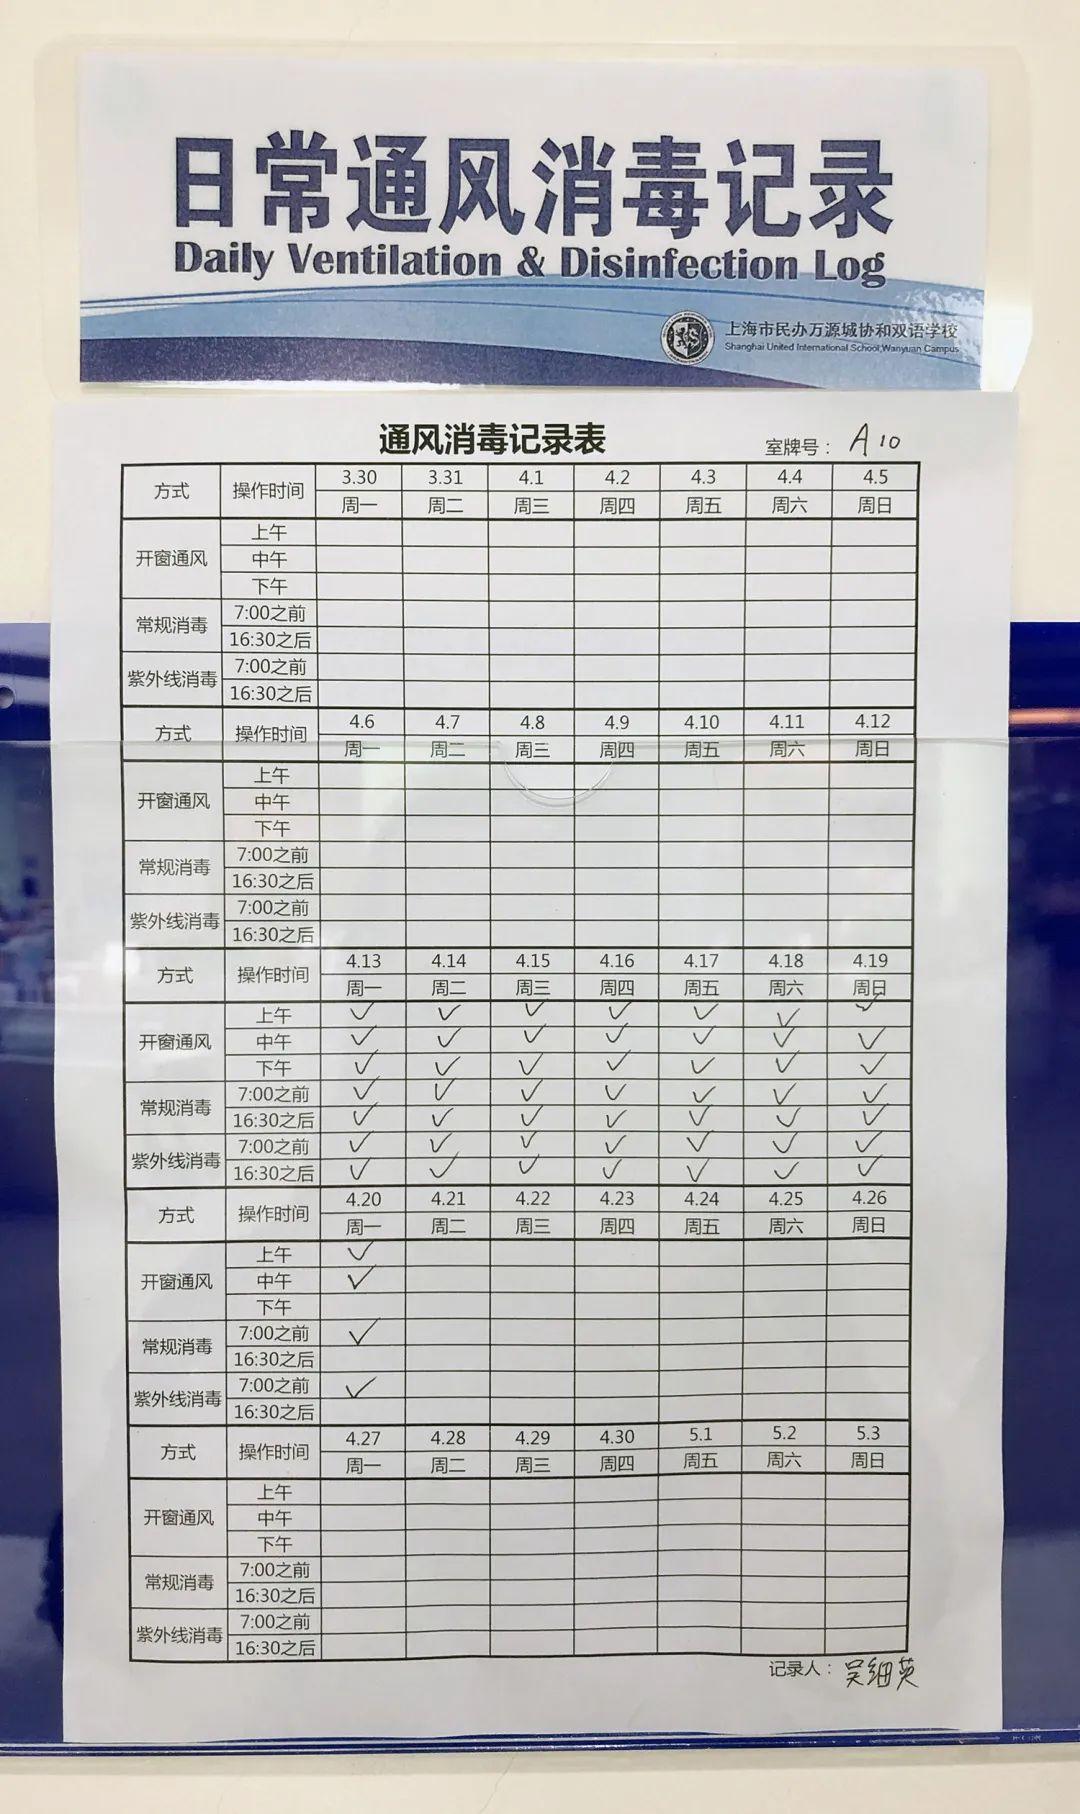 日常通风消毒记录
Daily Ventilation & Disinfection Log
上海市民办万源城协和双语学校
Shanghai United International School,Wanyuan Campus
通风消毒记录表
室牌号： A10
方式 操作时间 3.30 3.31 4.1 4.2 4.3 4.4 4.5
周一 周二 周三 周四 周五 周六 周日
开窗通风 上午
中午
下午
常规消毒 7:00之前
16:30之后
紫外线消毒 7:00之前
16:30之后
方式 操作时间 4.6 4.7 4.8 4.9 4.10 4.11 4.12
周一 周二 周三 周四 周五 周六 周日
开窗通风 上午
中午
下午
常规消毒 7:00之前
16:30之后
紫外线消毒 7:00之前
16:30之后
方式 操作时间 4.13 4.14 4.15 4.16 4.17 4.18 4.19
周一 周二 周三 周四 周五 周六 周日
开窗通风 上午 ✓ ✓ ✓ ✓ ✓ ✓ ✓
中午 ✓ ✓ ✓ ✓ ✓ ✓ ✓
下午 ✓ ✓ ✓ ✓ ✓ ✓ ✓
常规消毒 7:00之前 ✓ ✓ ✓ ✓ ✓ ✓ ✓
16:30之后 ✓ ✓ ✓ ✓ ✓ ✓ ✓
紫外线消毒 7:00之前 ✓ ✓ ✓ ✓ ✓ ✓ ✓
16:30之后 ✓ ✓ ✓ ✓ ✓ ✓ ✓
方式 操作时间 4.20 4.21 4.22 4.23 4.24 4.25 4.26
周一 周二 周三 周四 周五 周六 周日
开窗通风 上午 ✓
中午 ✓
下午
常规消毒 7:00之前 ✓
16:30之后
紫外线消毒 7:00之前 ✓
16:30之后
方式 操作时间 4.27 4.28 4.29 4.30 5.1 5.2 5.3
周一 周二 周三 周四 周五 周六 周日
开窗通风 上午
中午
下午
常规消毒 7:00之前
16:30之后
紫外线消毒 7:00之前
16:30之后
记录人： 吴细英